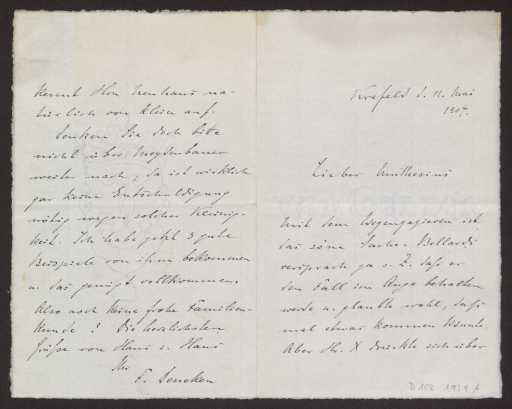 Krefeld d. 11. Mai
1907.
Lieber Muthesius
Mit dem Wegengagieren ist
das eine Sache.
versprach ja s. Z. daß er
den Fall im Auge behalten
werde u. glaubte wohl, daß
mal etwas kommen könnte.
Aber Hr. X drückte sich über
kommt Ihr Neuhaus na-
türlich von Klein auf.
Denken Sie doch bitte
nicht über
weiter nach, da ist wirklich
gar keine Entschuldigung
nötig wegen solcher Kleinig-
keit. Ich habe jetzt 3 gute
Beispiele von ihm bekommen
u. das genügt vollkommen.
Also noch keine frohe Familien-
kunde! Die herzlichsten
Grüße von Haus z. Haus
Ihr
F. Deneken
D 102 1939 A